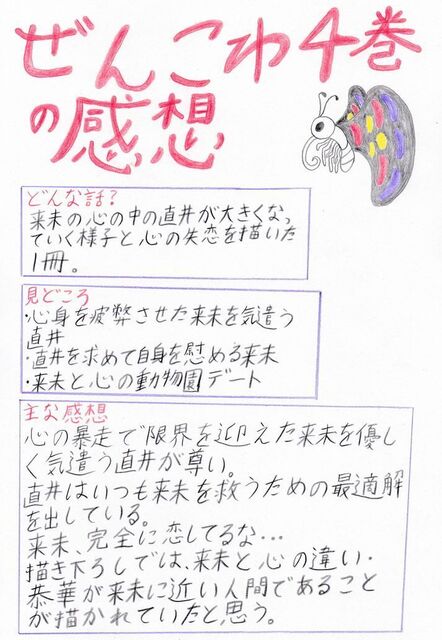 ぜんこわ4巻
の感想
どんな話？
来未の心の中の直井が大きくなっ
ていく様子と心の失恋を描いた
1冊。
見どころ
・心身を疲弊させた来未を気遣う
直井
・直井を求めて自身を慰める来未
・来未と心の動物園デート
主な感想
心の暴走で限界を迎えた来未を優し
く気遣う直井が尊い。
直井はいつも来未を救うための最適解
を出している。
来未、完全に恋してるな…
描き下ろしでは、来未と心の違い・
恭華が来未に近い人間であること
が描かれていたと思う。